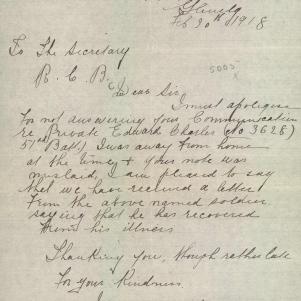 Feb 20th 1918
To The Secretary
R. C. B.
5003
Dear Sir
I must apologise
For not answering your Communication
re Private Edward Charles (No 3626)
57th Batt) I was away from home
at the time, & your note was
mislaid, I am pleased to say
that we have received a letter
From the above named soldier
saying that he has recovered
From his illness
Thanking you, though rather late
For your Kindness.